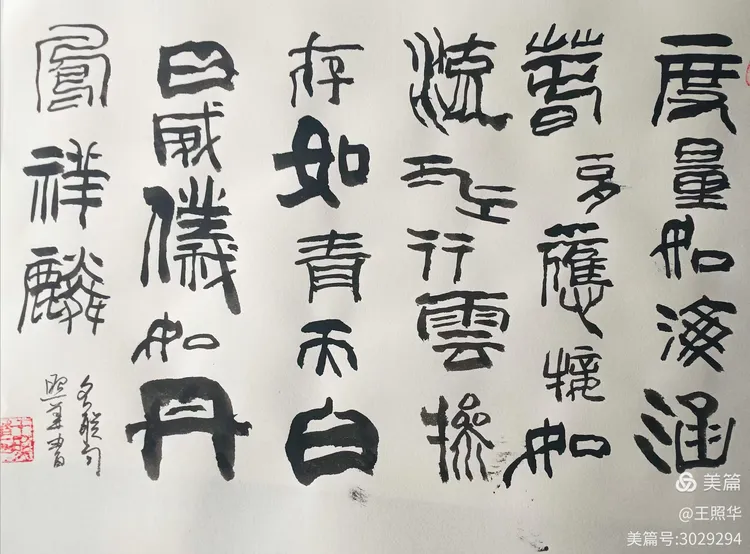 度量如海涵
春育應接如
流水行雲操
存如青天白
日威儀如丹
鳳祥麟
名聯句
照華書
美篇
@王照华
美篇号:3029294